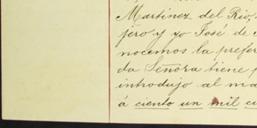 Martinez del Rio,
jero y yo José de
nocemos la prefer
da Señora tiene
introdujo al ma
á ciento un mil cu